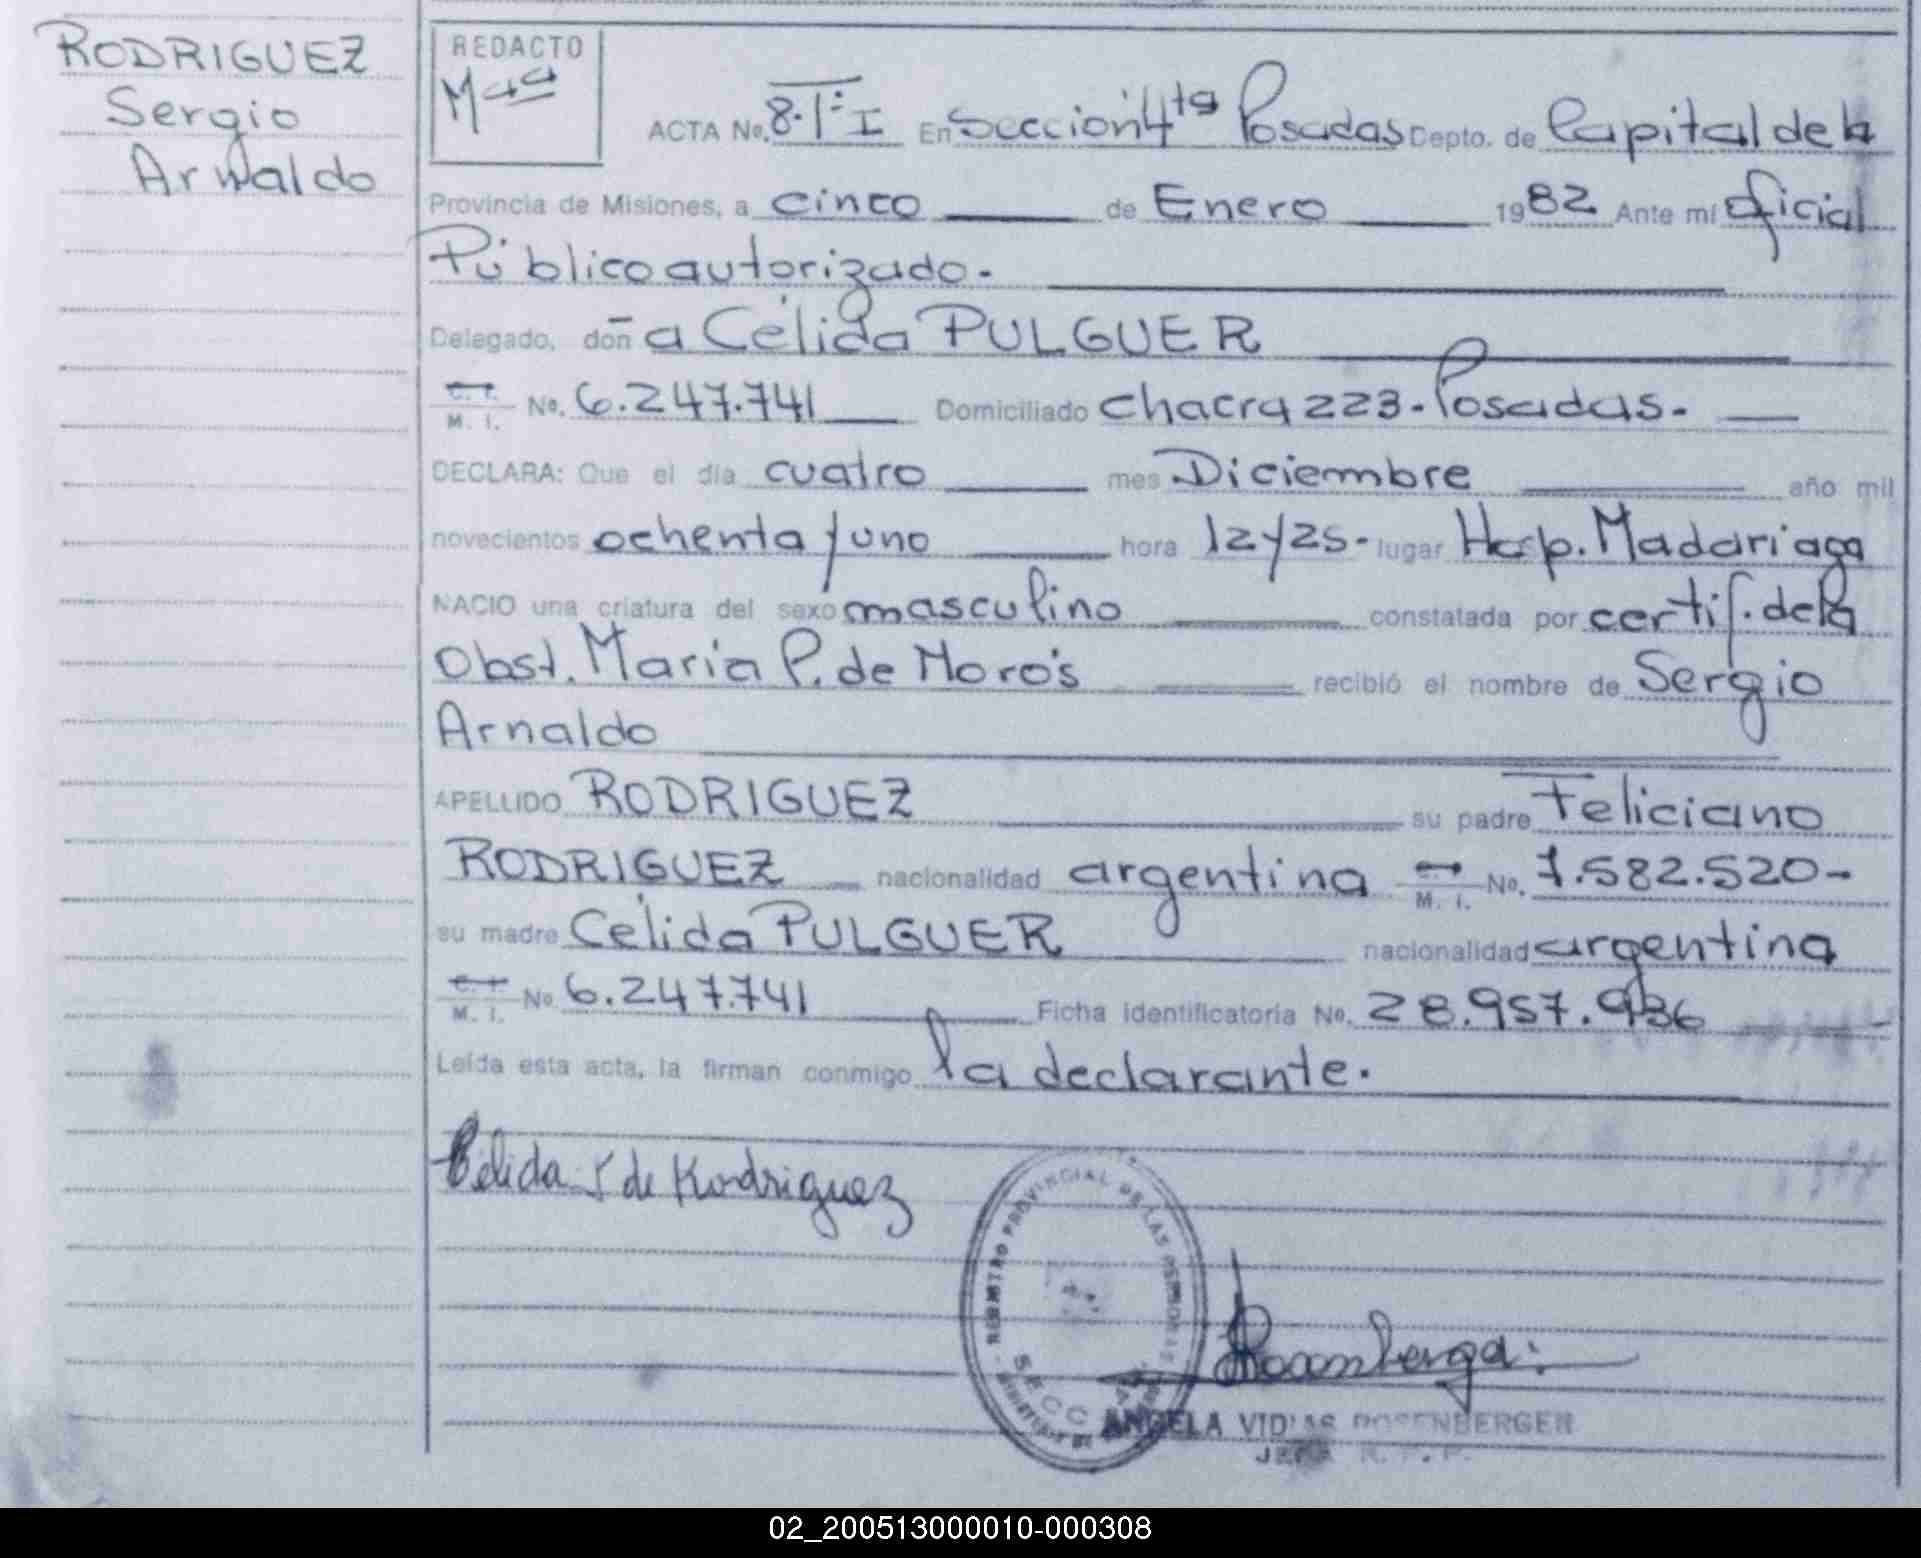 RODRIGUEZ
Sergio
Arnaldo
REDACTO
ACTA No. 8-Tº I En Sección 4ta Posadas Depto. de Capital de la
Provincia de Misiones, a cinco de Enero 1982 Ante mí oficial
Público autorizado.-
Delegado, doña Célida PULGUER
C. I. M. I. No. 6.247.741 Domiciliado Chacra 223-Posadas-
DECLARA: Que el día cuatro mes Diciembre año mil
novecientos ochenta y uno hora 12 y 25- lugar Hosp. Madariaga
NACIO una criatura del sexo masculino constatada por certif. de la
Obst. Maria P. de Moro's recibió el nombre de Sergio
Arnaldo
APELLIDO RODRIGUEZ su padre Feliciano
RODRIGUEZ nacionalidad argentina M. I. No. 7.582.520-
su madre Célida PULGUER nacionalidad argentina
C. I. M. I. No. 6.247.741 Ficha identificatoria No. 28.957.936
Leída esta acta, la firman conmigo la declarante.
Célida de Rodriguez
REGISTRO PROVINCIAL DE LAS PERSONAS
SECC
ANGELA ROSENBERGER
JEFA R. P. P.
02_200513000010-000308